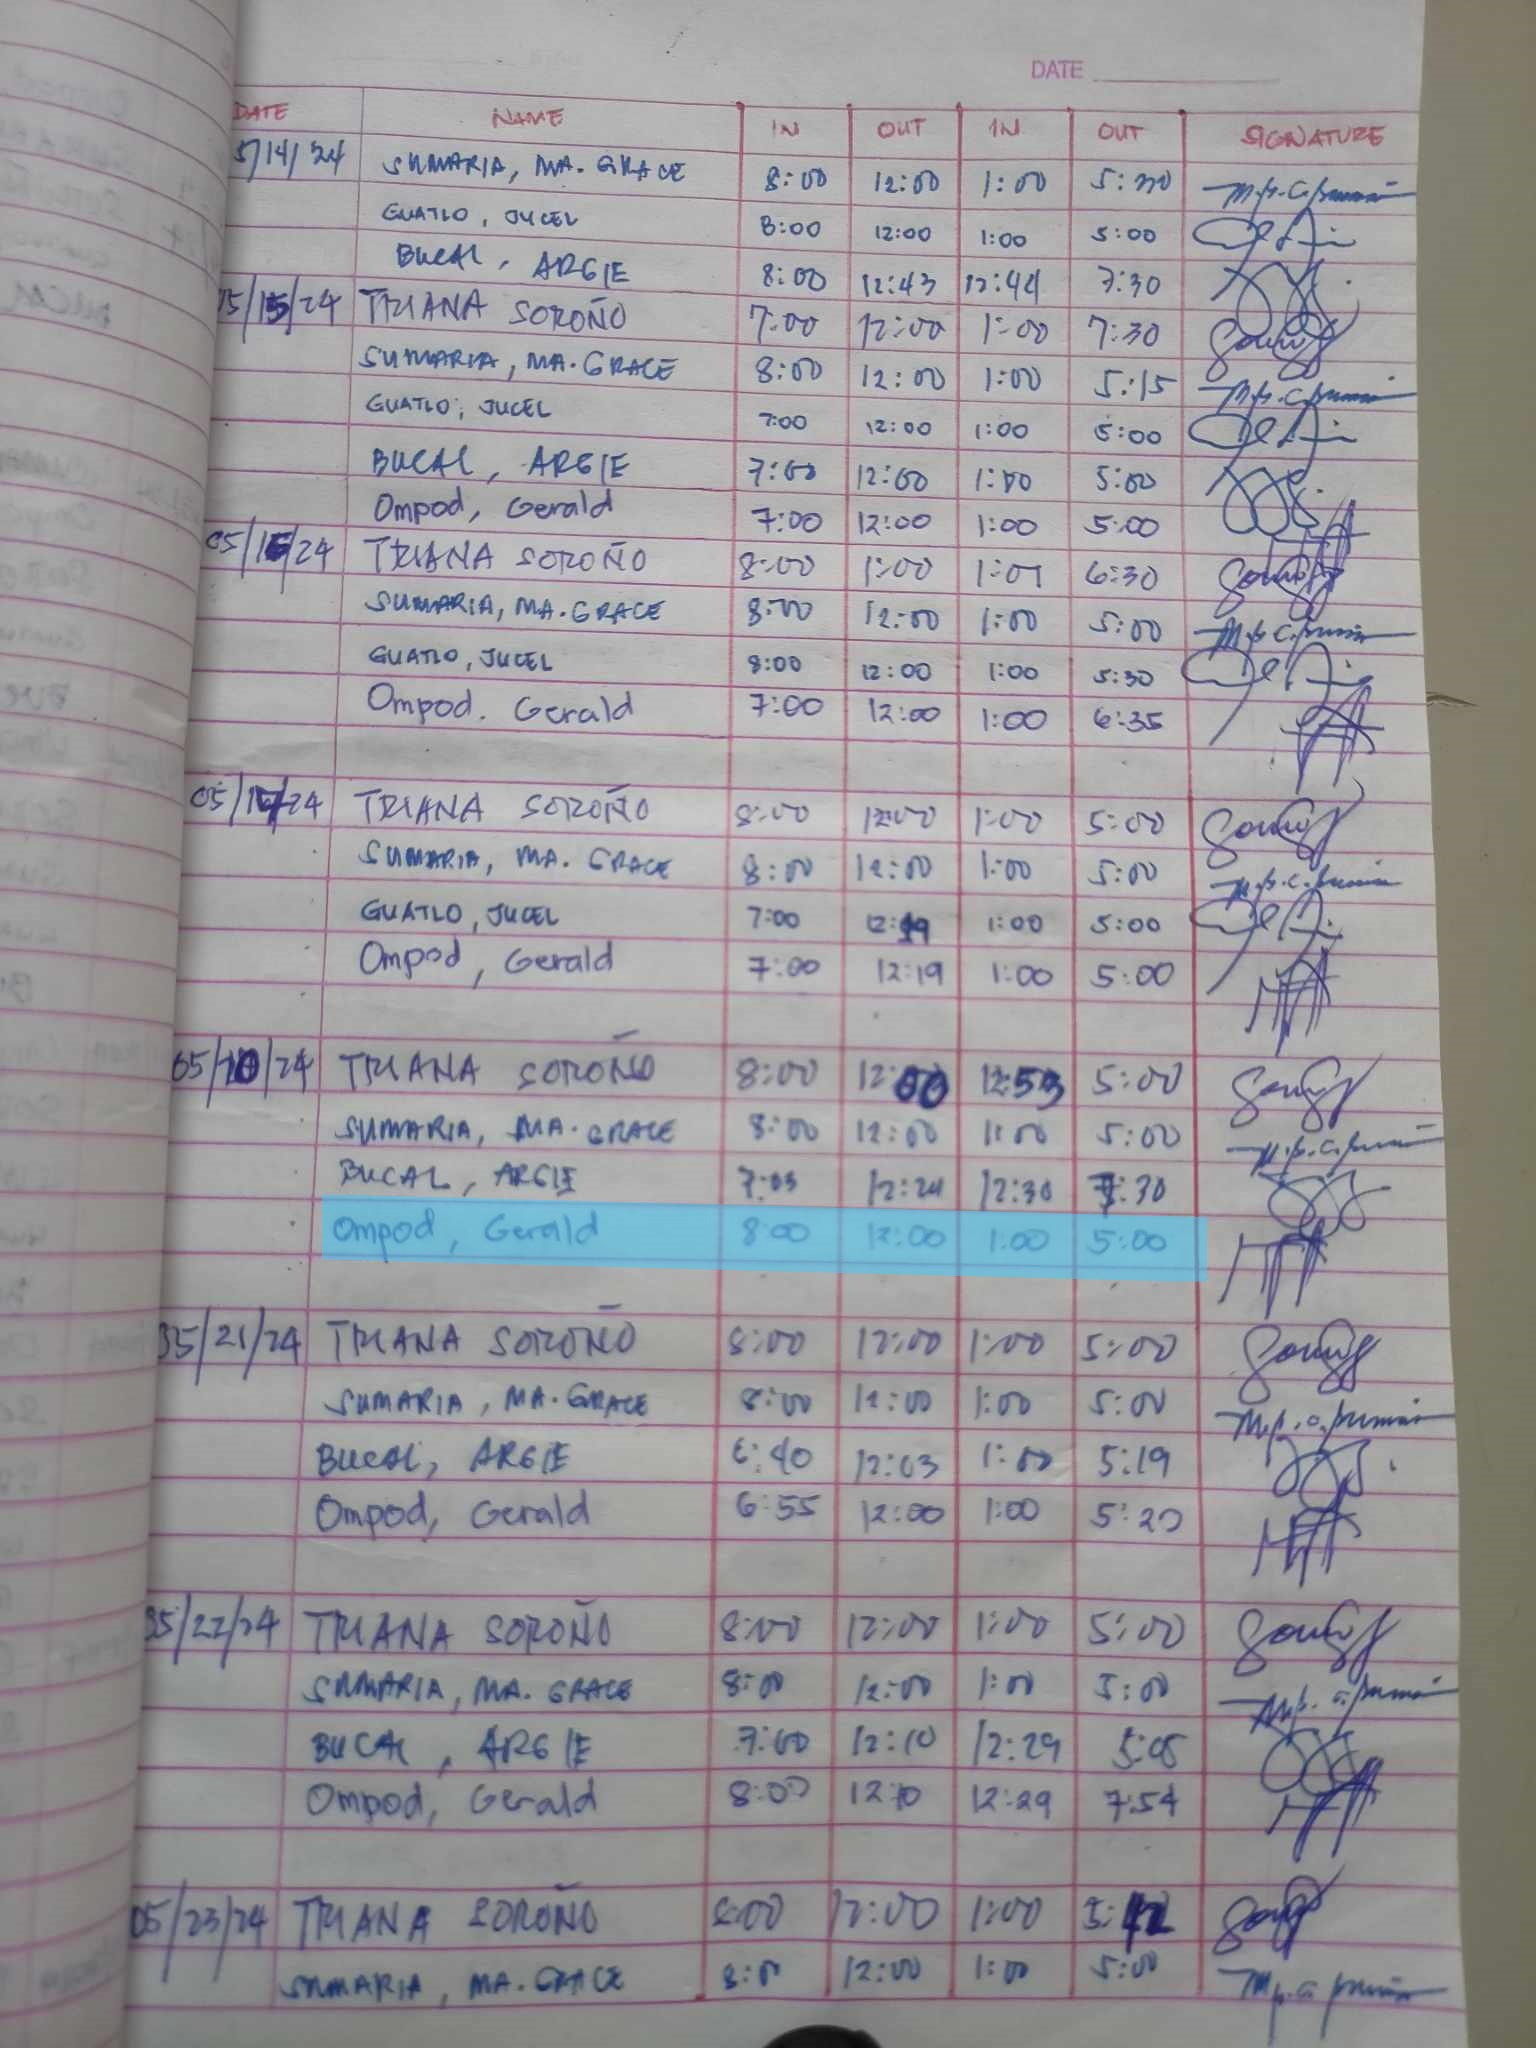 DATE
DATE NAME IN OUT IN OUT SIGNATURE
5/14/24 SUMARIA, MA. GRACE 8:00 12:00 1:00 5:30
GUATLO, JUCEL 8:00 12:00 1:00 5:00
BUCAL, ARGIE 8:00 12:43 12:44 7:30
05/15/24 TRIANA SOROÑO 7:00 12:00 1:00 7:30
SUMARIA, MA. GRACE 8:00 12:00 1:00 5:15
GUATLO, JUCEL 7:00 12:00 1:00 5:00
BUCAL, ARGIE 7:00 12:00 1:00 5:00
Ompod, Gerald 7:00 12:00 1:00 5:00
05/16/24 TRIANA SOROÑO 8:00 1:00 1:01 6:30
SUMARIA, MA. GRACE 8:00 12:00 1:00 5:00
GUATLO, JUCEL 8:00 12:00 1:00 5:30
Ompod. Gerald 7:00 12:00 1:00 6:35
05/17/24 TRIANA SOROÑO 8:00 12:00 1:00 5:00
SUMARIA, MA. GRACE 8:00 12:00 1:00 5:00
GUATLO, JUCEL 7:00 12:19 1:00 5:00
Ompod, Gerald 7:00 12:19 1:00 5:00
05/20/24 TRIANA SOROÑO 8:00 12:00 12:53 5:00
SUMARIA, MA. GRACE 8:00 12:00 1:00 5:00
BUCAL, ARGIE 7:03 12:24 12:30 7:30
Ompod, Gerald 8:00 12:00 1:00 5:00
05/21/24 TRIANA SOROÑO 8:00 12:00 1:00 5:00
SUMARIA, MA. GRACE 8:00 12:00 1:00 5:00
BUCAL, ARGIE 6:40 12:03 1:00 5:19
Ompod, Gerald 6:55 12:00 1:00 5:20
05/22/24 TRIANA SOROÑO 8:00 12:00 1:00 5:00
SUMARIA, MA. GRACE 8:00 12:00 1:00 5:00
BUCAL, ARGIE 7:00 12:10 12:29 5:05
Ompod, Gerald 8:00 12:10 12:29 7:54
05/23/24 TRIANA SOROÑO 8:00 12:00 1:00
SUMARIA, MA. GRACE 8:00 12:00 1:00 5:00